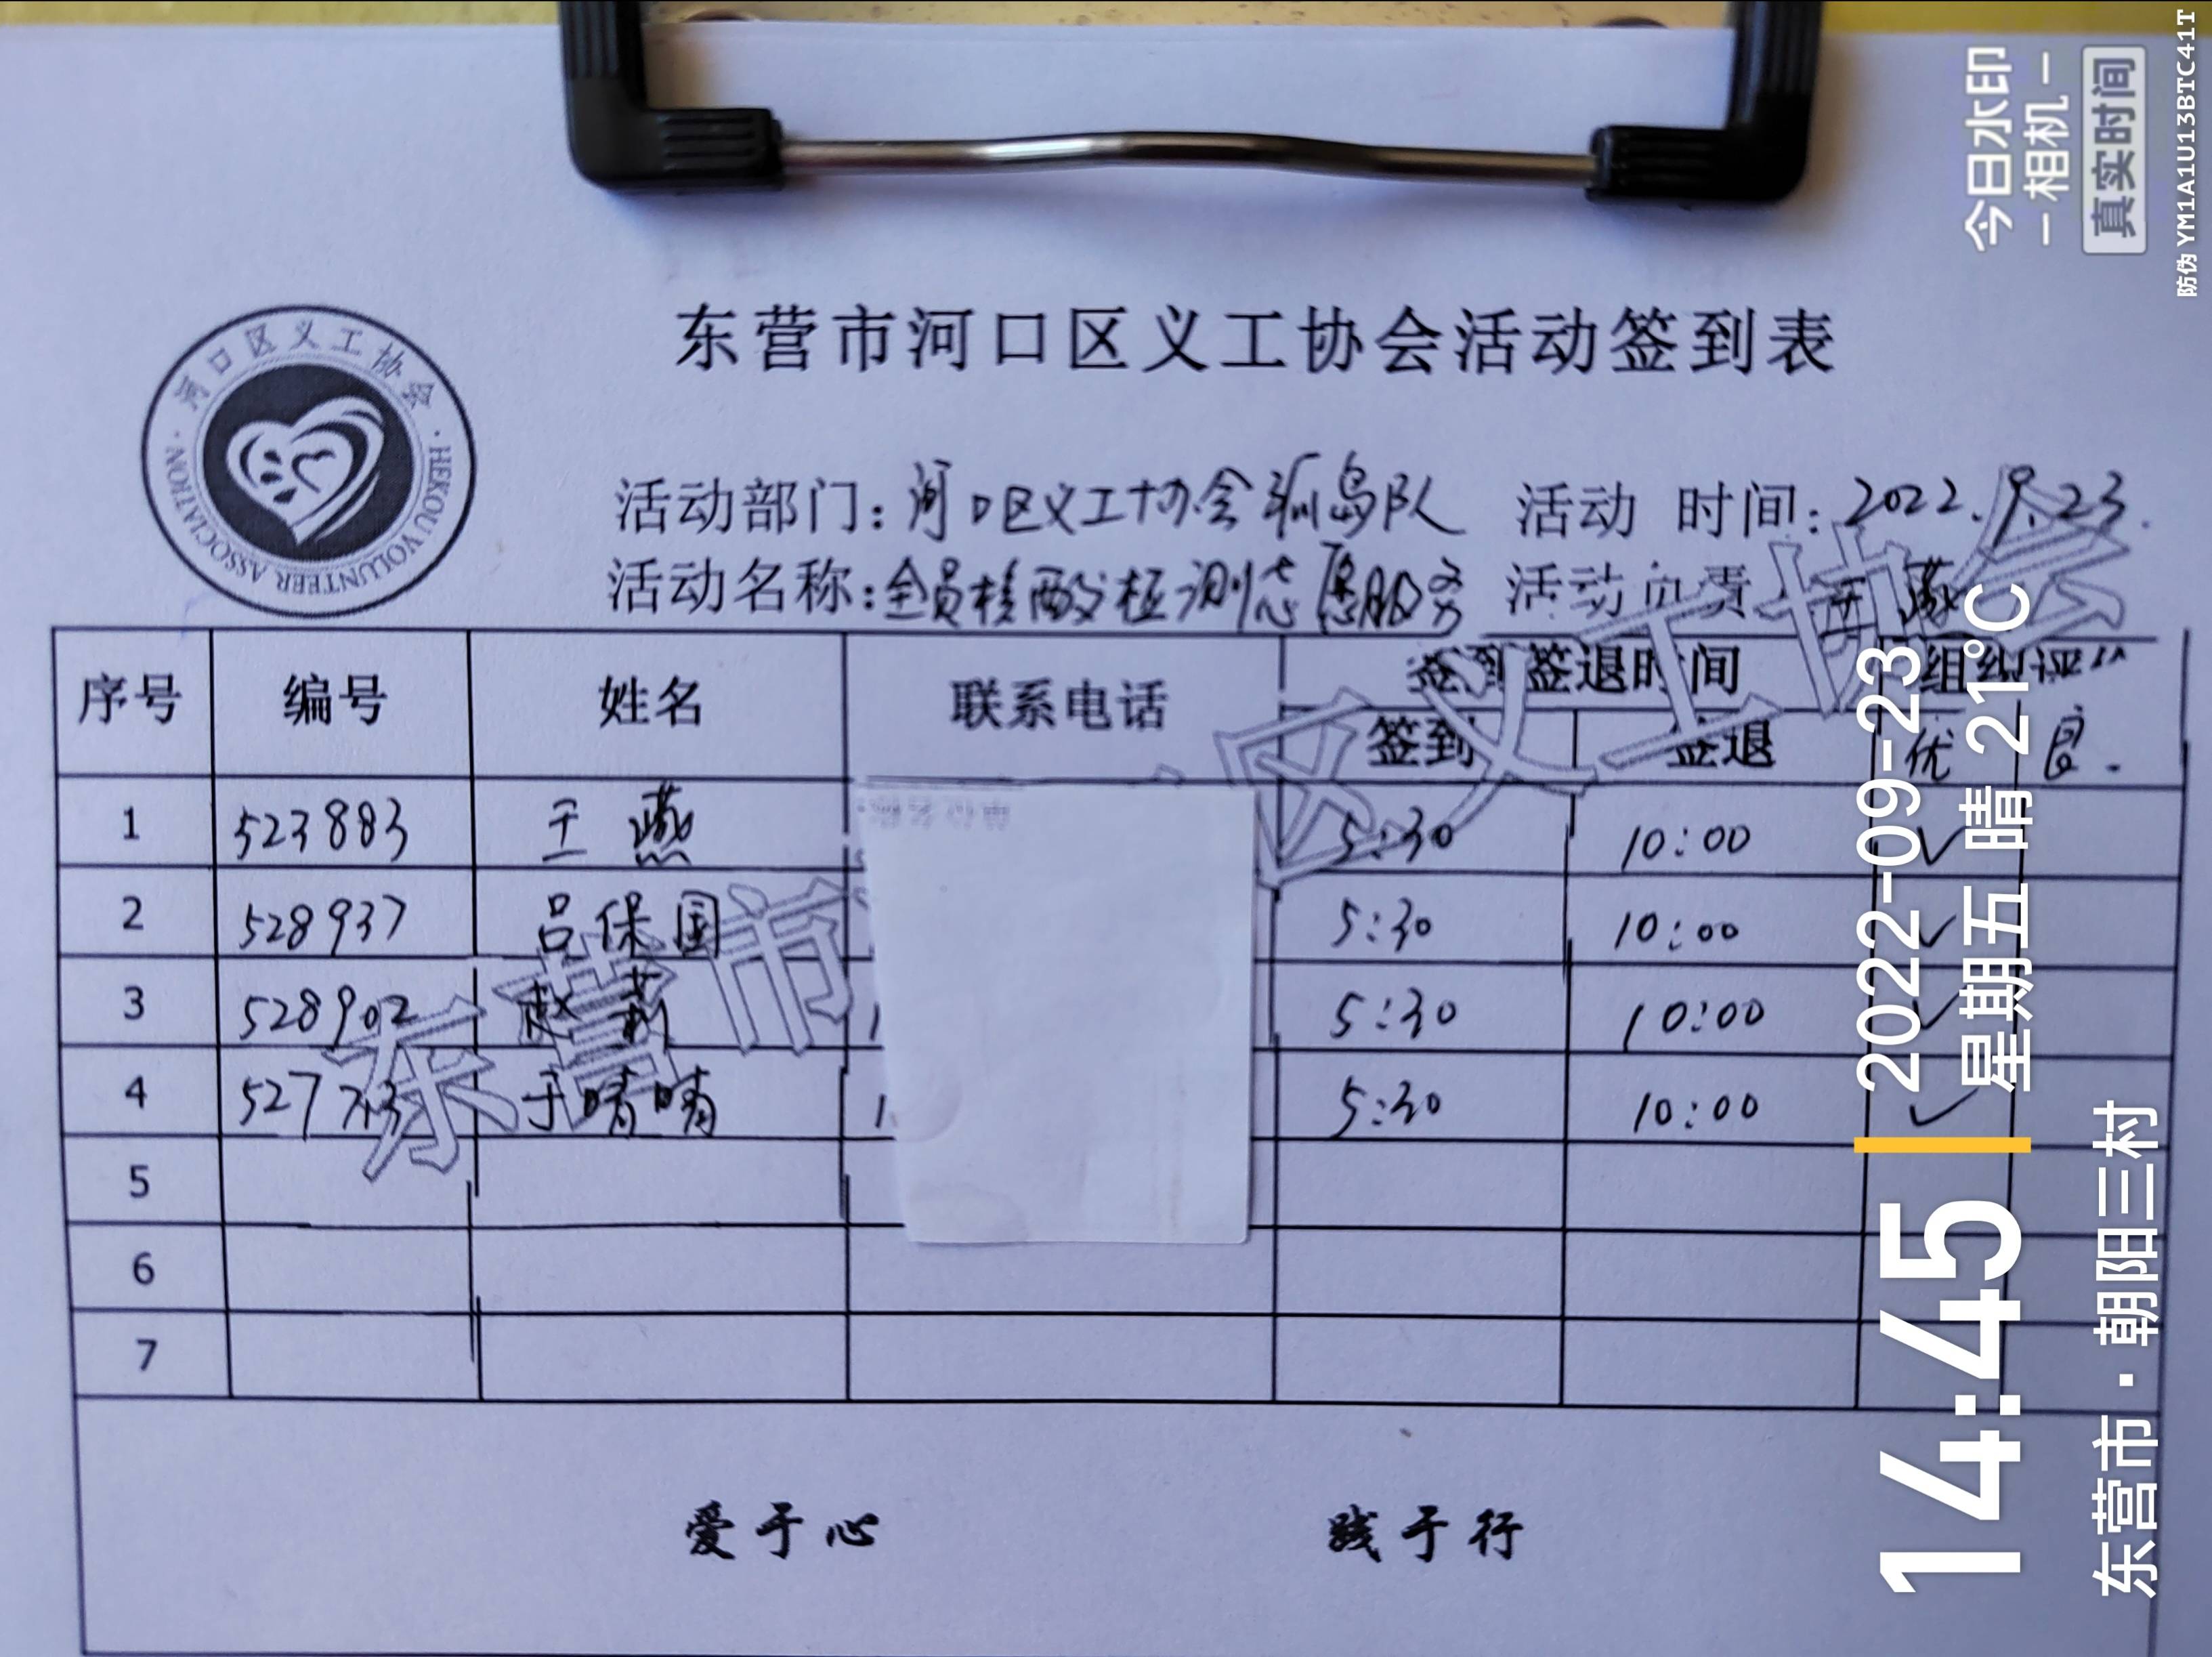 今日水印
-相机-
真实时间
防伪 YM1A1U13BTC41T
东营市河口区义工协会活动签到表
·河口区义工协会·
HEKOU VOLUNTEER ASSOCIATION
活动部门:河口区义工协会孤岛队 活动 时间:2022.9.23.
活动名称:全员核酸检测志愿服务 活动负责 王燕
序号 编号 姓名 联系电话 签到签退时间 组织评价
签到 签退 优 良.
1 523883 王燕 5:30 10:00 ✓
2 528937 吕保国 5:30 10:00 ✓
3 528902 赵莉 1 5:30 10:00 ✓
4 527713 于晴晴 1 5:30 10:00 ✓
5
6
7
爱于心 践于行
东营市 区义工协会
14:45
2022-09-23
星期五 晴 21°C
东营市·朝阳三村